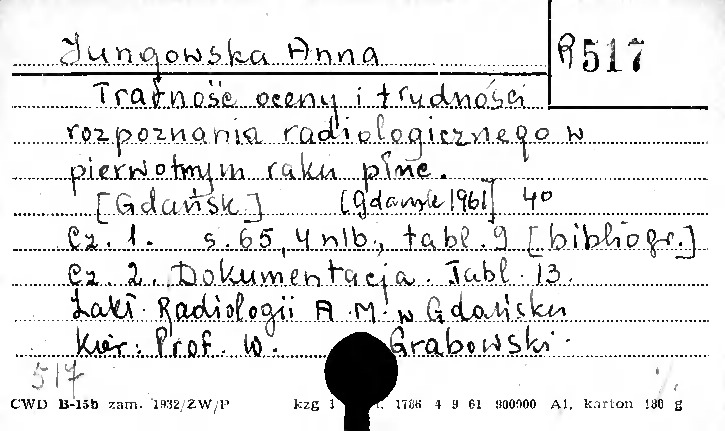 Jungowska Anna
R 517
Trafność oceny i trudności
rozpoznania radiologicznego w
pierwotnym raku płuc.
[Gdańsk] [Gdańsk 1961] 4o
Cz. 1. s. 65, 4 nlb., tabl. 9 [bibliogr.]
Cz. 2. Dokumentacja. Tabl. 13.
Zakł. Radiologii A.M. w Gdańsku
Kier.: Prof. W. Grabowski.
517
CWD B-15b zam. 1932/ZW/P kzg 1786 4 9 61 900000 A1, karton 180 g